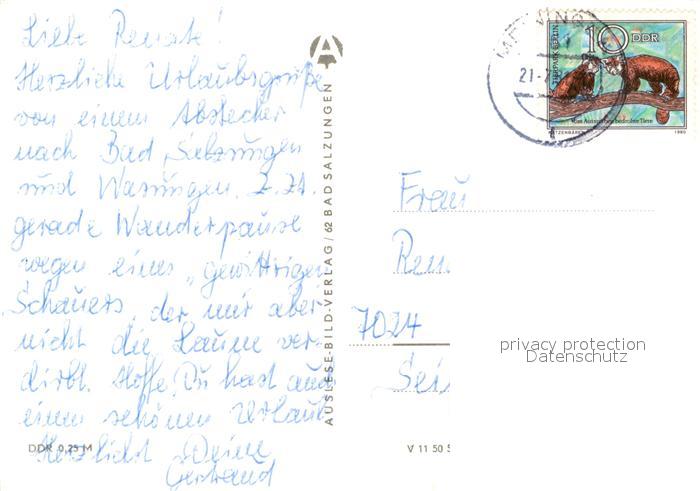 Liebe Renate!
Herzliche Urlaubsgrüße
von einem Abstecher
nach Bad Salzungen
und Wasungen. Z. Zt.
gerade Wanderpause
wegen eines „gewittrigen
Schauers, der mir aber
nicht die Laune ver-
dirbt. Hoffe, Du hast auch
einen schönen Urlaub
Herzlichst Deine
Gertraud
DDR 0,25 M
AUSLESE-BILD-VERLAG/62 BAD SALZUNGEN
V 11 50
TIERPARK BERLIN
10 DDR
Vom Aussterben bedrohte Tiere
KATZENBÄREN
1980
MEININGEN
21-7
Frau
Ren
7024
privacy protection
Datenschutz